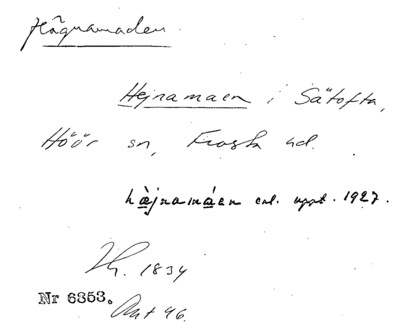 Högnamaden
Hejnamaen i Sätofta,
Höör sn, Frosta hd.
hæ̀jnamáen enl. uppt. 1927.
Th. 1834
Nr 6353. Ant 96.